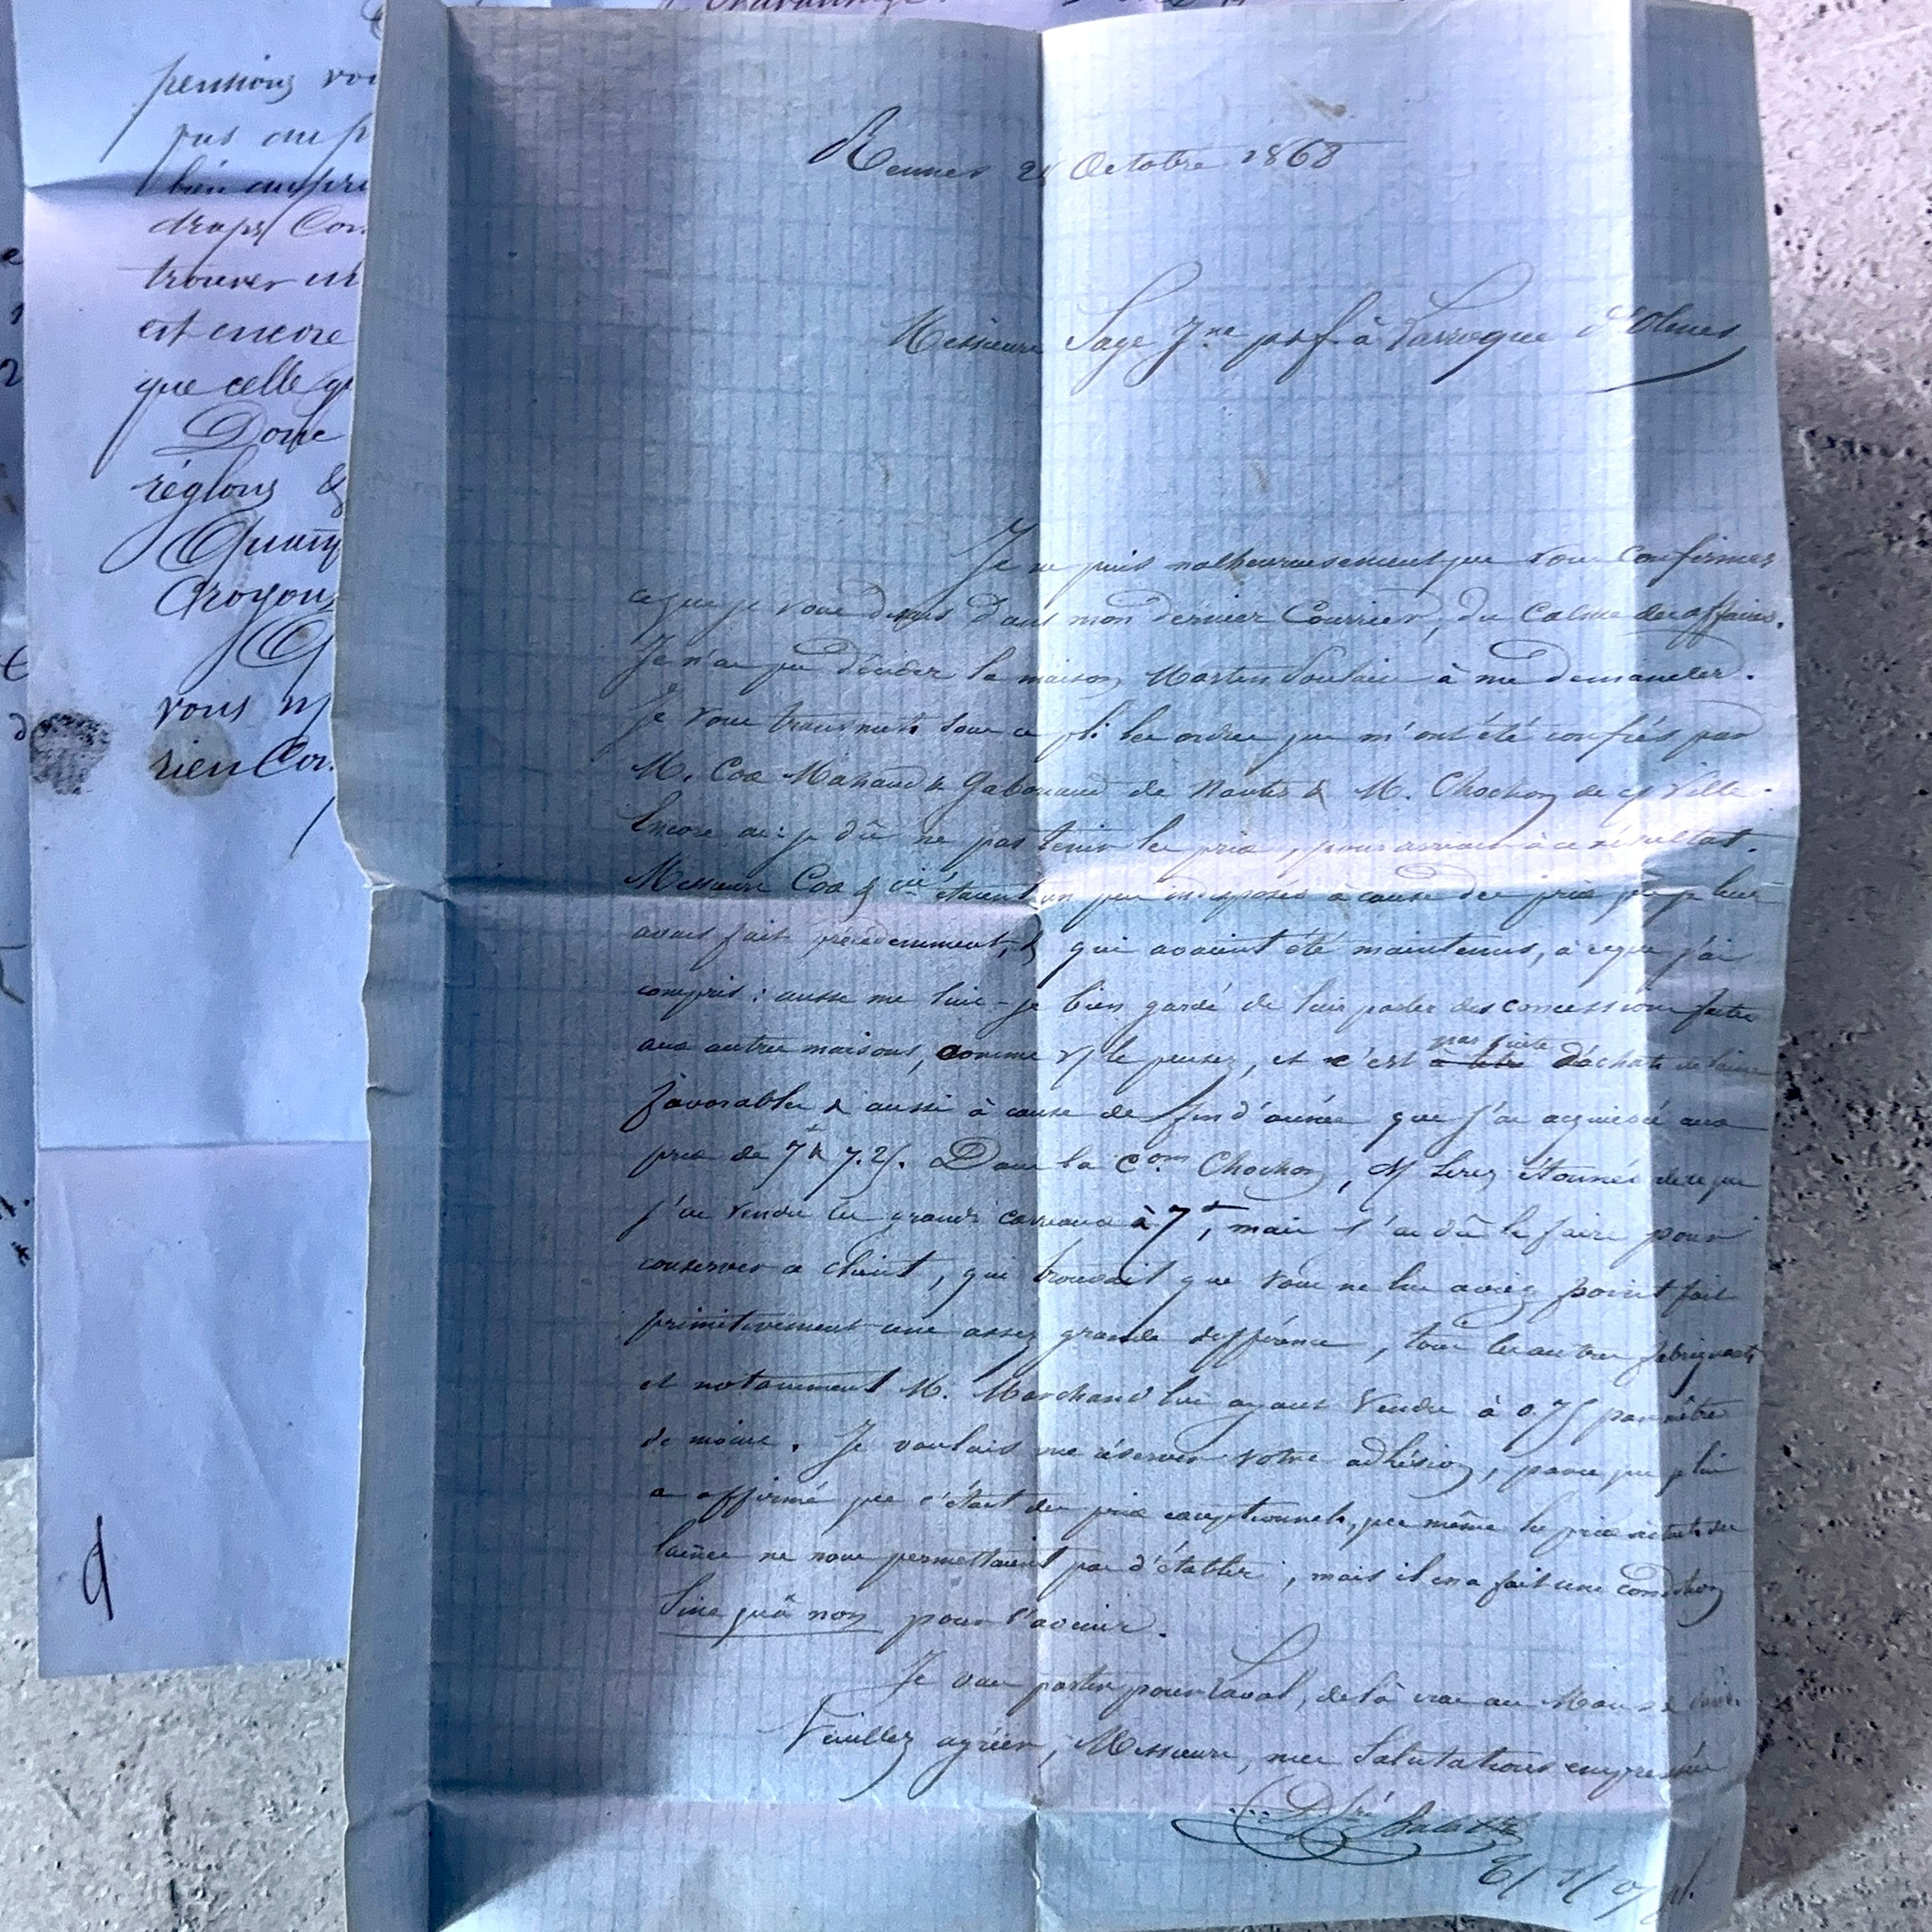 pensions vou
pas au p
bien au pri
draps Con
trouver un
est encore
que celle qu
Donc
réglons &
Quan
Croyons
vous
rien Con
Rennes 24 Octobre 1868
Messieurs Sage Jne p & f à Laroque d'Olmes
Je ne puis malheureusement que vous confirmer
ce que je vous disais dans mon dernier Courrier, du Calme des affaires.
Je n'ai pu décider la maison Martin Poulain à me demander.
Je vous transmets sous ce pli les ordres que m'ont été confiés par
M. Cox Mahaud & Gabouaud de Nantes & M. Chochon de cy Ville.
Encore ai-je dû ne pas tenir les prix, pour arriver à ce résultat.
Messieurs Cox & Cie étaient un peu indisposés à cause des prix que je leur
avais fait précédemment, & qui avaient été maintenus, à ce que j'ai
compris : aussi me suis-je bien gardé de leur parler des concessions faites
aux autres maisons, comme v/ le pensez, et c'est par suite d'achats de laine
favorables & aussi à cause de fin d'année que j'ai acquiescé aux
prix de 7f & 7.25. Dans la Com Chochon, v/ serez étonnés de ce que
j'ai vendu les grands carreaux à 7f, mais j'ai dû le faire pour
conserver ce client, qui trouvait que vous ne lui aviez point fait
primitivement une assez grande différence, tous les autres fabriquants
et notamment M. Marchand lui ayant vendu à 0.75 par mètre
de moins. Je voulais me réserver votre adhésion, parce que je lui
ai affirmé que c'était des prix exceptionnels, que même les prix actuels des
laines ne nous permettaient pas d'établir, mais il en a fait une condition
sine quâ non pour l'avenir.
Je vais partir pour Laval, de là irai au Mans &
Veuillez agréer, Messieurs, mes salutations empressées
Dsiré